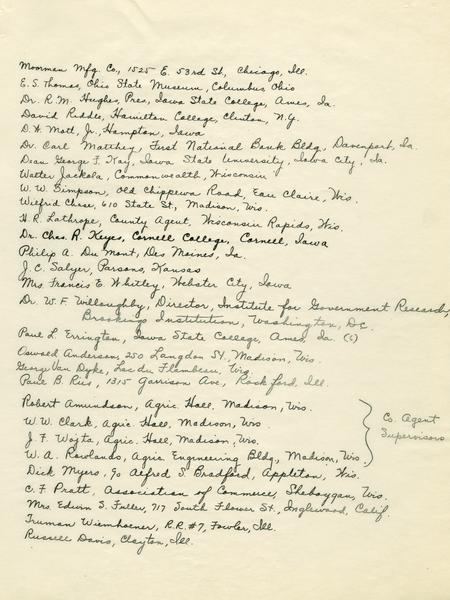 Moorman Mfg. Co., 1525 E. 53rd St, Chicago, Ill.
E. S. Thomas, Ohio State Museum, Columbus Ohio
Dr. R. M. Hughes, Pres, Iowa State College, Ames, Ia.
David Riddle, Hamilton College, Clinton, N.Y.
D. H. Mott, Jr, Hampton, Iowa
Dr. Carl Matthey, First National Bank Bldg, Davenport, Ia.
Dean George F. Kay, Iowa State University, Iowa City, Ia.
Walter Jackola, Commonwealth, Wisconsin
W. W. Simpson, Old Chippewa Road, Eau Claire, Wis.
Wilfrid Chase, 610 State St, Madison, Wis.
H. R. Lathrope, County Agent, Wisconsin Rapids, Wis.
Dr. Chas. R. Keyes, Cornell College, Cornell, Iowa
Philip A. Du Mont, Des Moines, Ia.
J. C. Salyer, Parsons, Kansas
Mrs. Francis E. Whitley, Webster City, Iowa
Dr. W. F. Willoughby, Director, Institute for Government Research,
Brookings Institution, Washington, D.C.
Paul L. Errington, Iowa State College, Ames, Ia.
Oswald Anderson, 250 Langdon St., Madison, Wis.
George Van Dyke, Lac du Flambeau, Wis.
Paul B. Riis, 1315 Garrison Ave, Rockford, Ill.
Robert Amundson, Agric. Hall, Madison, Wis.
W. W. Clark, Agric. Hall, Madison, Wis.
J. F. Wojta, Agric. Hall, Madison, Wis.
W. A. Rowlands, Agric. Engineering Bldg, Madison, Wis.
Co. Agent
Supervisors
Dick Myers, % Alfred S. Bradford, Appleton, Wis.
C. F. Pratt, Association of Commerce, Sheboygan, Wis.
Mrs. Edwin S. Fuller, 717 South Flower St., Inglewood, Calif.
Truman Wiemhoener, R.R. #7, Fowler, Ill.
Russell Davis, Clayton, Ill.